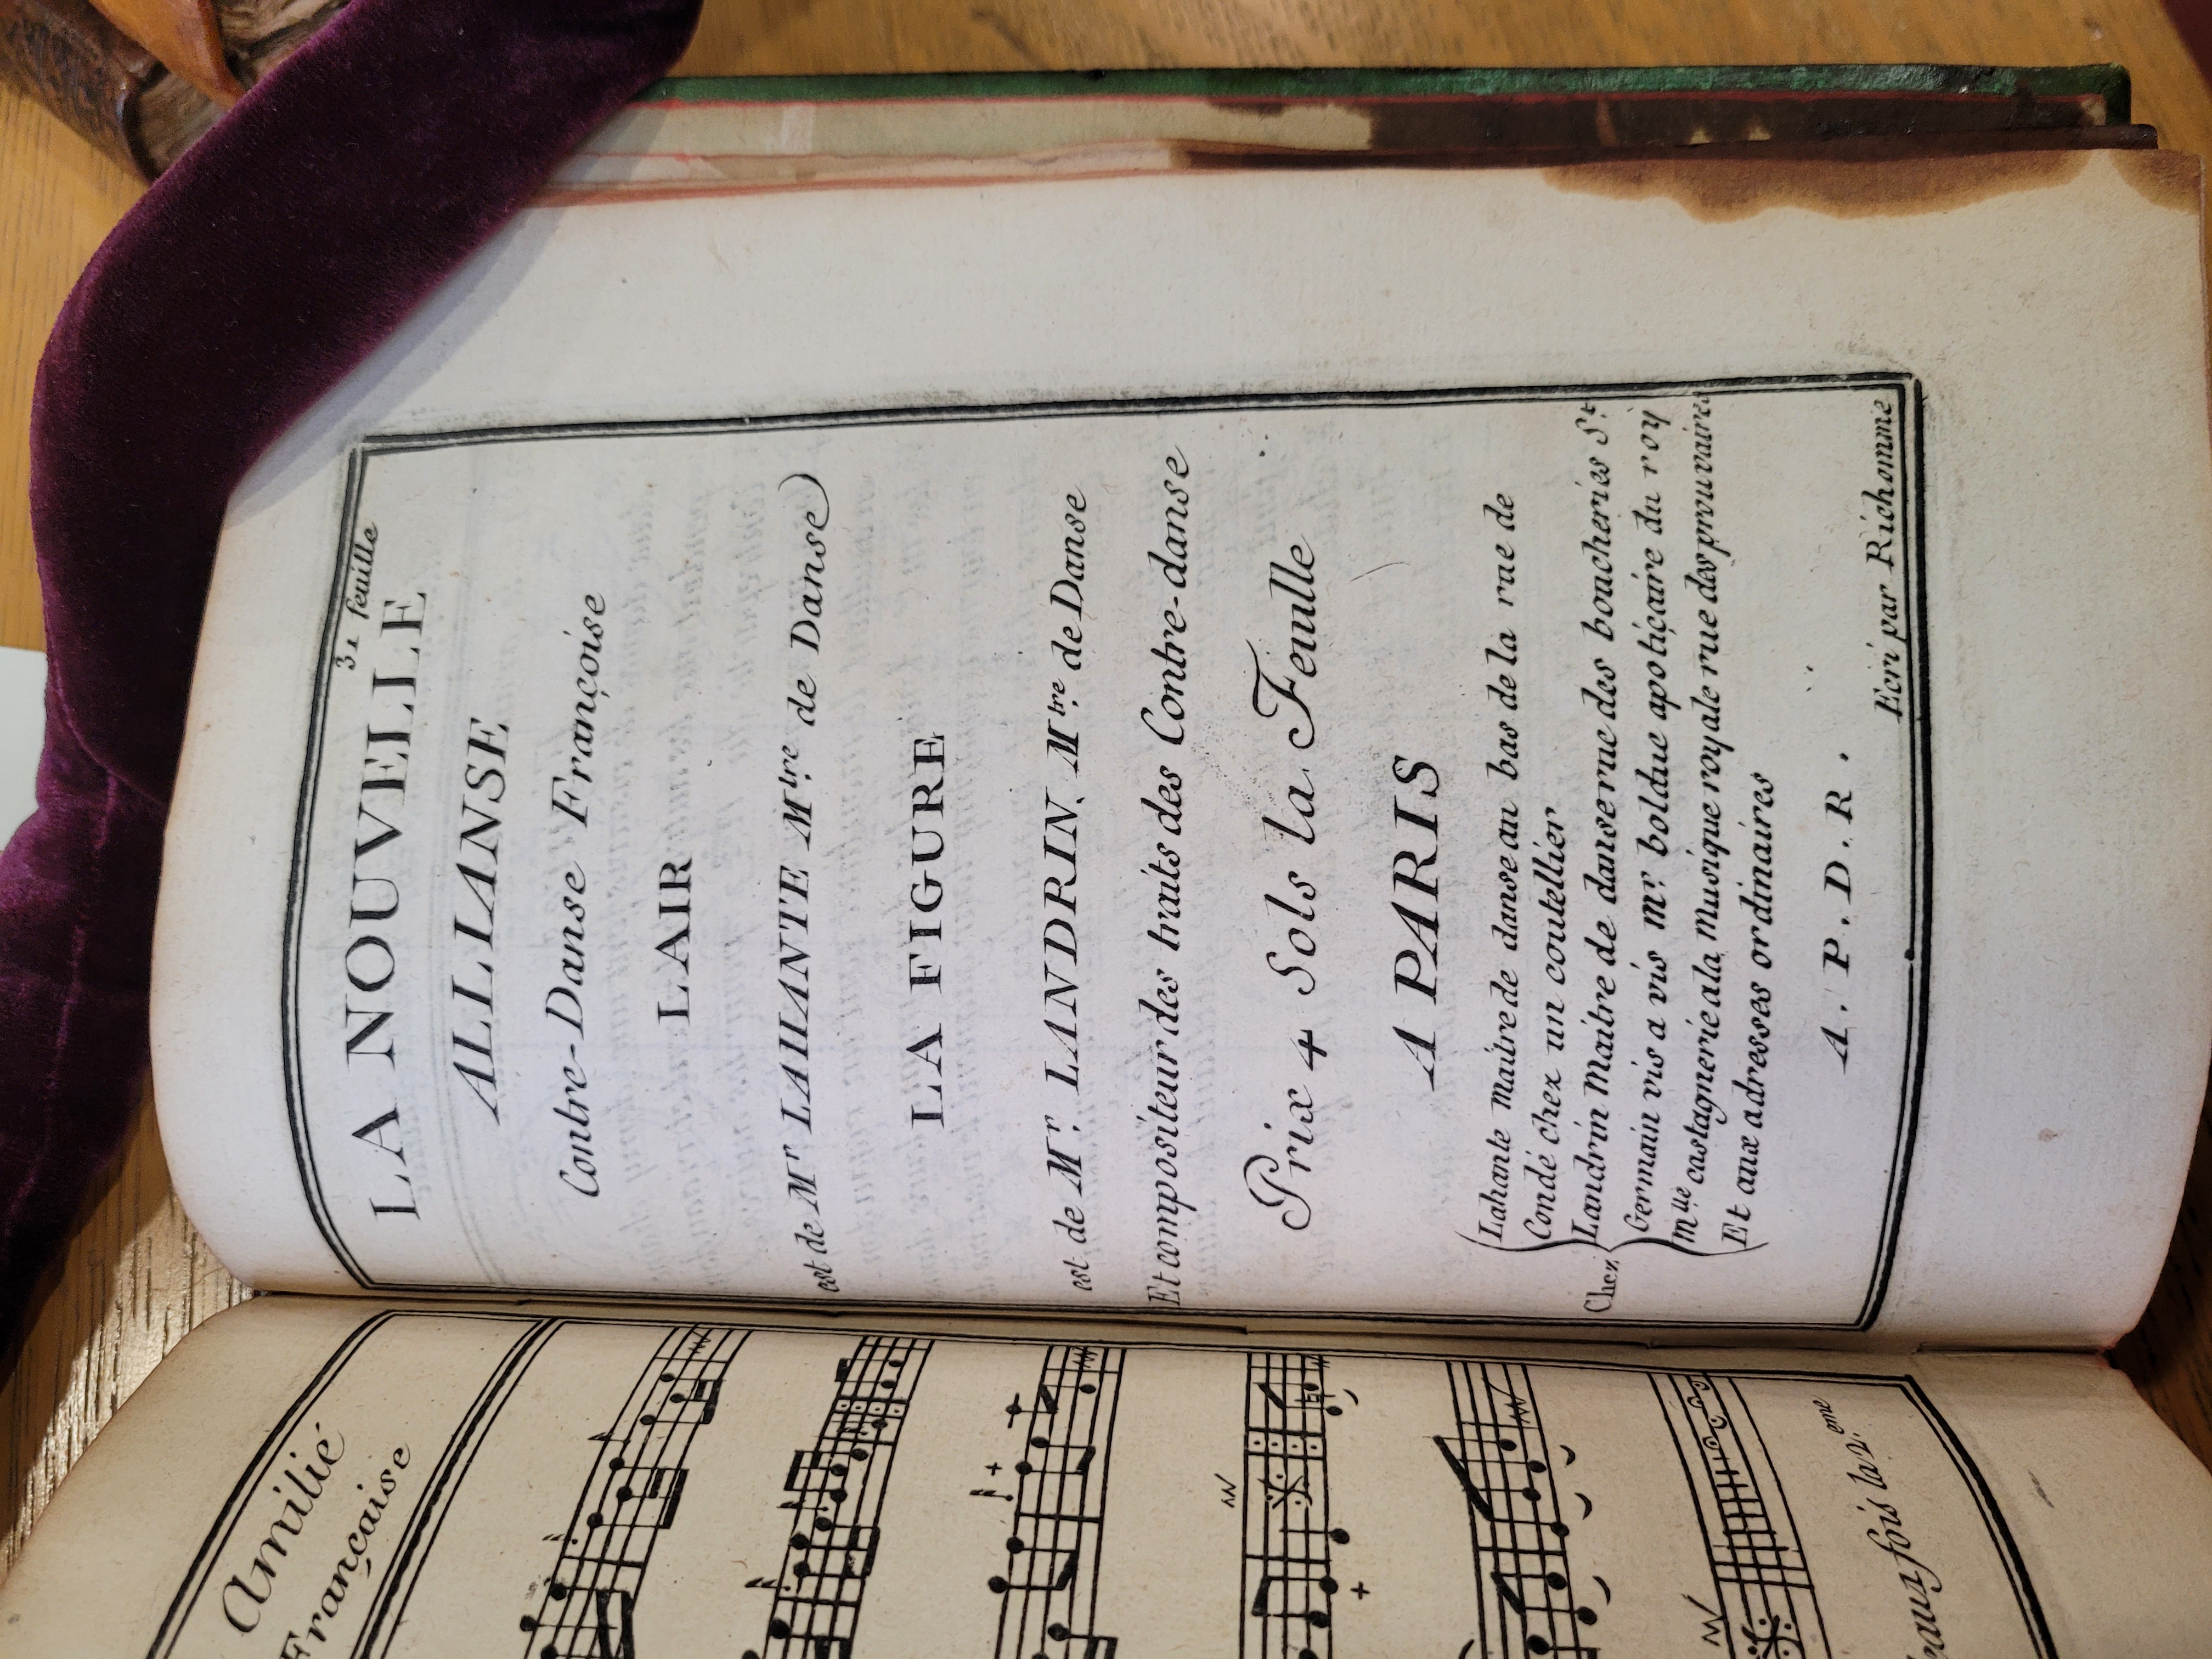 31 feuille
LA NOUVELLE
ALLIANSE
Contre-Danse Françoise
LAIR
est de Mr. LAHANTE Mtre. de Danse
LA FIGURE
est de Mr. LANDRIN. Mtre. de Danse
Et compositeur des traits des Contre-danse
Prix 4 Sols la Feuille
A PARIS
Chez
Lahante Maitre de danse au bas de la rue de
Condé chez un coutellier
Landrin Maitre de danse rue des boucheries St.
Germain vis a vis mr. bolduc apoticaire du roy
Mlle. castagnerie a la Musique royale rue des prouvaires
Et aux adresses ordinaires
A. P. D. R.
Ecrit par Richomme
amitié
Française
fois la 2.eme